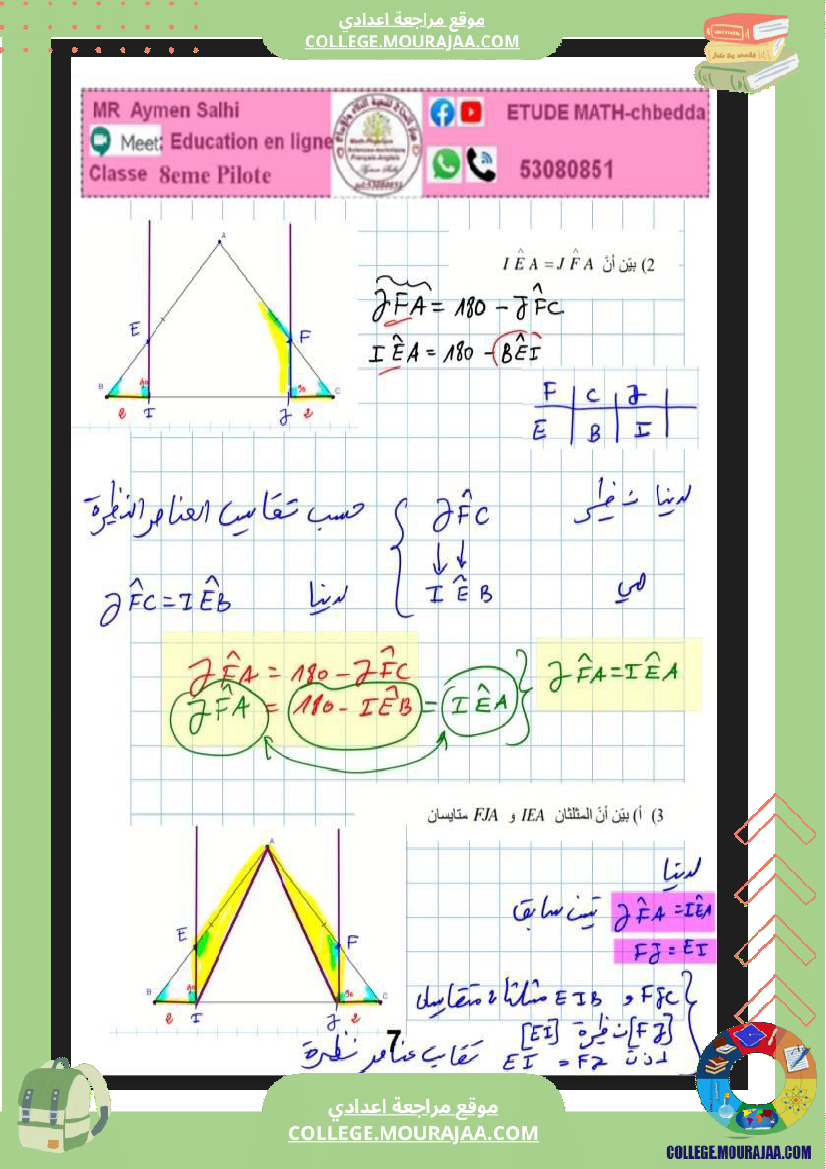 موقع مراجعة اعدادي
COLLEGE.MOURAJAA.COM
MR Aymen Salhi
Meet: Education en ligne
Classe 8eme Pilote
ETUDE MATH-chbedda
53080851
2) بيّن أنّ I Ê A = J F̂ A
J F̂ A = 180 - J F̂ C
I Ê A = 180 - B Ê I
A
E F
B 90 90 C
e I J e
F | C | J
E | B | I
لدينا نظير J F̂ C حسب تقايس العناصر النظيرة
هي I Ê B لدينا J F̂ C = I Ê B
J F̂ A = 180 - J F̂ C
J F̂ A = 180 - I Ê B = I Ê A } J F̂ A = I Ê A
3) أ) بيّن أنّ المثلثان IEA و FJA متايسان
لدينا
J F̂ A = I Ê A سابق
FJ = EI
A
E F
B 90 90 C
e I J e
FJC و EIB مثلثان متقايسان
[FJ] نظيرة [EI]
اذن EI = FJ تقايس عناصر نظيرة
7
موقع مراجعة اعدادي
COLLEGE.MOURAJAA.COM
COLLEGE.MOURAJAA.COM